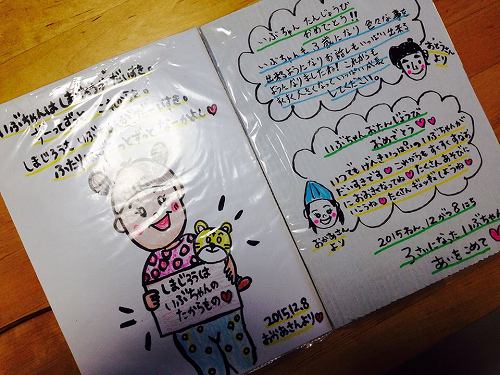 いぶちゃんは しまじろうが だいすき。
ずーっとずーっと
しまじろうも いぶちゃんが だいすき。
ふたりは ずーっとずーっと なかよし♥
しまじろうは
いぶちゃんの
たからもの♥
2015.12.8
おかあさんより♥
いぶちゃん たんじょうび
おめでとう!!
いぶちゃんも 3歳になり 色々な事を
出来るようになり お話しも いっぱい 出来る
ようになりましたね! これからも
してください!
おとうさん
より
いぶちゃん おたんじょうび
おめでとう♥
いつでも げんきいっぱいの いぶちゃんが
だいすきです♥ これからも すくすく すなお
に おおきくなってね♥ たくさん あそびに
いこうね♥ たくさん ぎゅーっ しようね♥
おかあさん
より
2015ねん、12がつ8にち
3さいになった いぶちゃんへ
あいをこめて♥